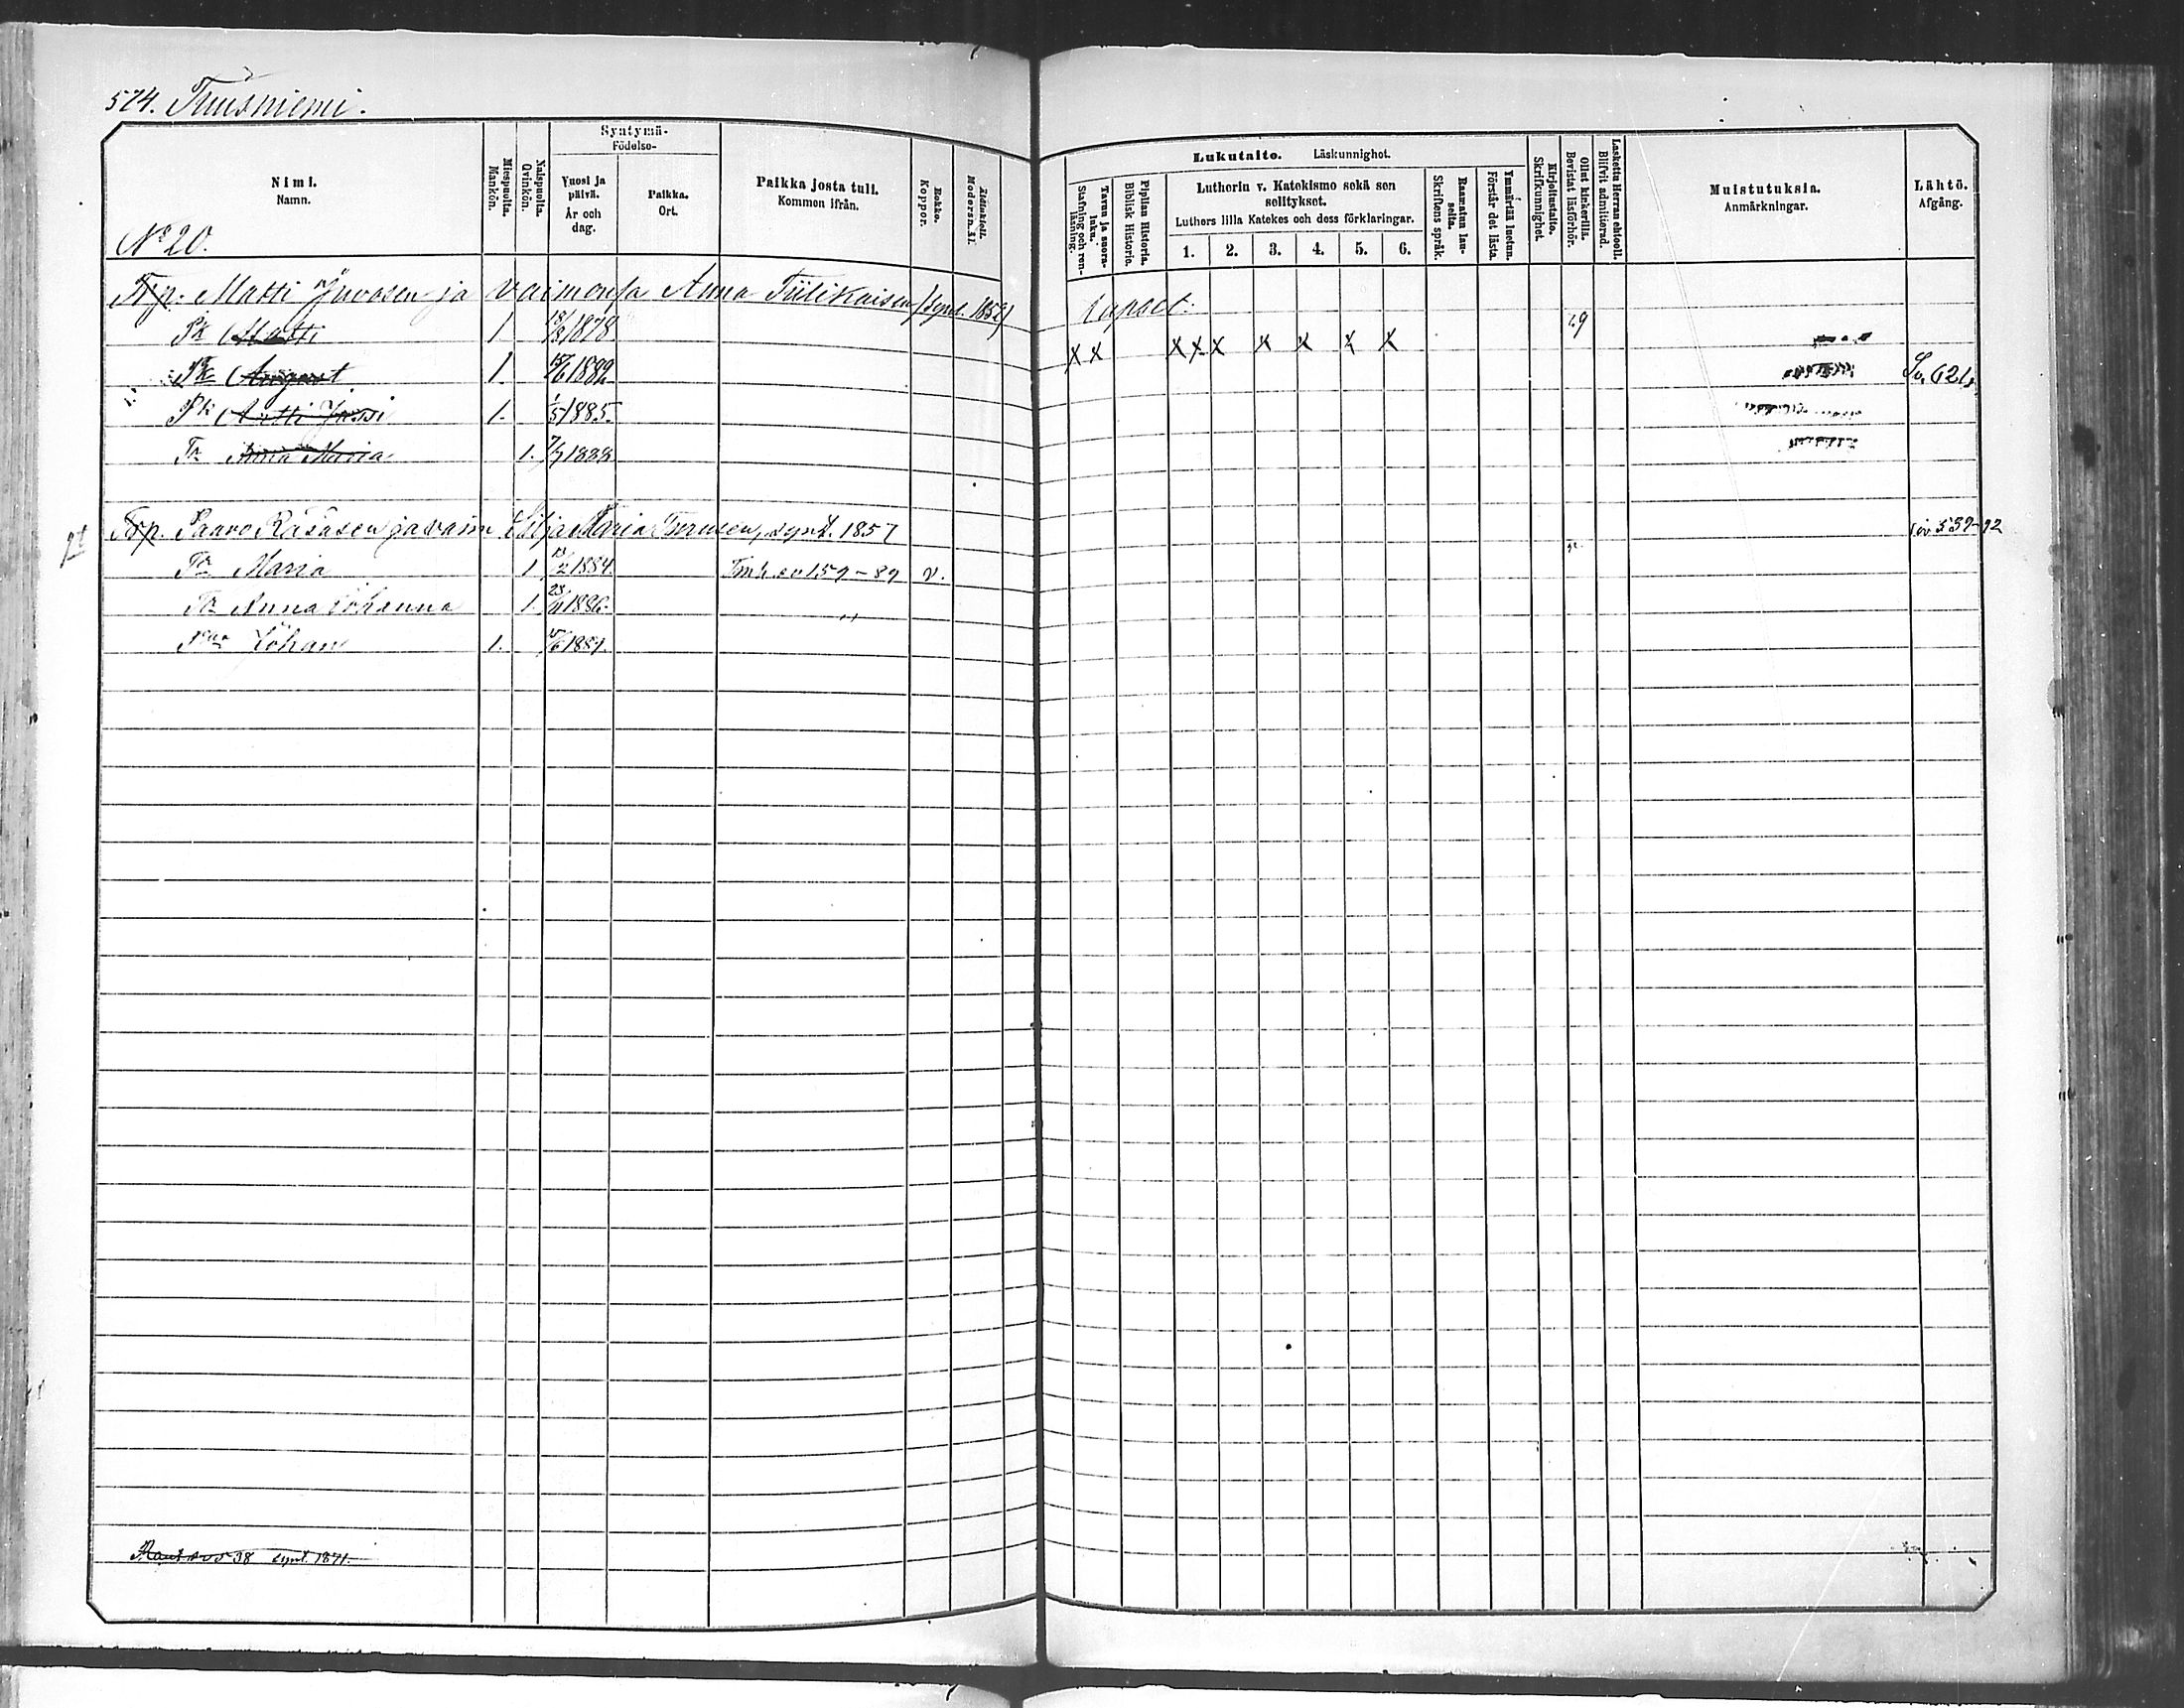 574. Tuusniemi.
Nimi.
Namn.
Miespuolta.
Mankön.
Naispuolta.
Qvinkön.
Syntymä-
Födelse-
Vuosi ja
päivä.
År och
dag.
Paikka.
Ort.
Paikka josta tuli.
Kommen ifrån.
Rokko.
Koppor.
Äidinkieli.
Modersm.
Lukutaito. Läskunnighet.
Tavuu ja suora-
luku.
Stafning och ren-
läsning.
Piplian Historia.
Biblisk Historie.
Lutherin v. Katekismo sekä sen
selitykset.
Luthers lilla Katekes och dess förklaringar.
1. 2. 3. 4. 5. 6.
Raamatun lau-
seita.
Skriftens språk.
Ymmärtää luetun.
Förstår det lästa.
Kirjoitustaito.
Skrifkunnighet.
Ollut kinkerillä.
Bevistat läsförhör.
Laskettu Herran ehtooll.
Blifvit admitterad.
Muistutuksia.
Anmärkningar.
Lähtö.
Afgång.
No 20.
Trp. Matti Juvosen ja vaimonsa Anna Tiilikaisen (synt. 1852) lapset.
Pk Matti 1 18/8 1878 X X X X X X X X X
Pk August 1. 1882 Sv. 621
Pk Antti Jussi 1. 1/5 1885.
Tr Anna Maria 1. 7/7 1888
Trp. Paavo Räsäsen ja vaim Silja Maria synt. 1857 siv 539-92
Tr Maria 1 1884. 159-89 v.
Tr Anna Johanna 1. 23/11 1886. ,,
Johan 1. 1889.
38 synt. 1871.